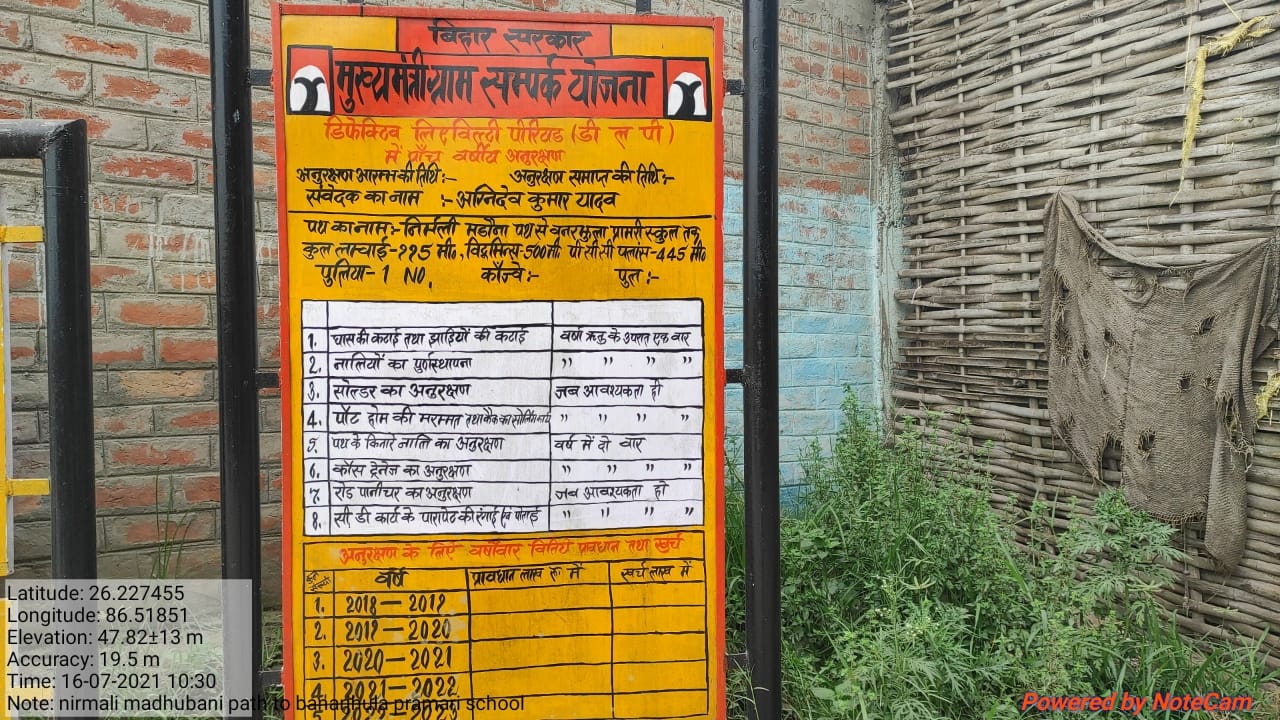 बिहार सरकार
मुख्यमंत्री ग्राम सम्पर्क योजना
डिफेक्टिव लिएविल्टी पीरियड (डी ल पी)
में पाँच वर्षीय अनुरक्षण
अनुरक्षण आरम्भ की तिथि :- अनुरक्षण समाप्त की तिथि :-
संवेदक का नाम :- अग्निदेव कुमार यादव
पथ का नाम :- निर्मली मझौना पथ से वनरझुला प्रामरी स्कुल तक
कुल लम्बाई- मी०, विटुमिन्स-500मी० पी सी सी फ्लांस-445 मी०
पुलिया- 1 NO. कॉज्वे :- पुल :-
1. घास की कटाई तथा झाड़ियों की कटाई वर्षा ऋतु के उपरांत एक वार
2. नालियों का पुर्णस्थापना ,, ,, ,, ,,
3. सोल्डर का अनुरक्षण जब आवश्यकता हो
4. पॉट होम की मरम्मत तथा ,, ,, ,, ,,
5. पथ के किनारे नालि का अनुरक्षण वर्ष में दो वार
6. क्रॉस ड्रेनेज का अनुरक्षण ,, ,, ,, ,,
7. रोड पानीचर का अनुरक्षण जब आवश्यकता हो
8. सी डी कार्य के पारापेट की रंगाई एवं पोताई ,, ,, ,, ,,
अनुरक्षण के लिऐ वर्षवार वितिय प्रावधान तथा खर्च
वर्ष प्रावधान लाख रू में खर्च लाख में
1. 2018-2019
2. 2019-2020
3. 2020-2021
4. 2021-2022
5. 2022-2023
Latitude: 26.227455
Longitude: 86.51851
Elevation: 47.82±13 m
Accuracy: 19.5 m
Time: 16-07-2021 10:30
Note: nirmali madhubani path to pramari school
Powered by NoteCam